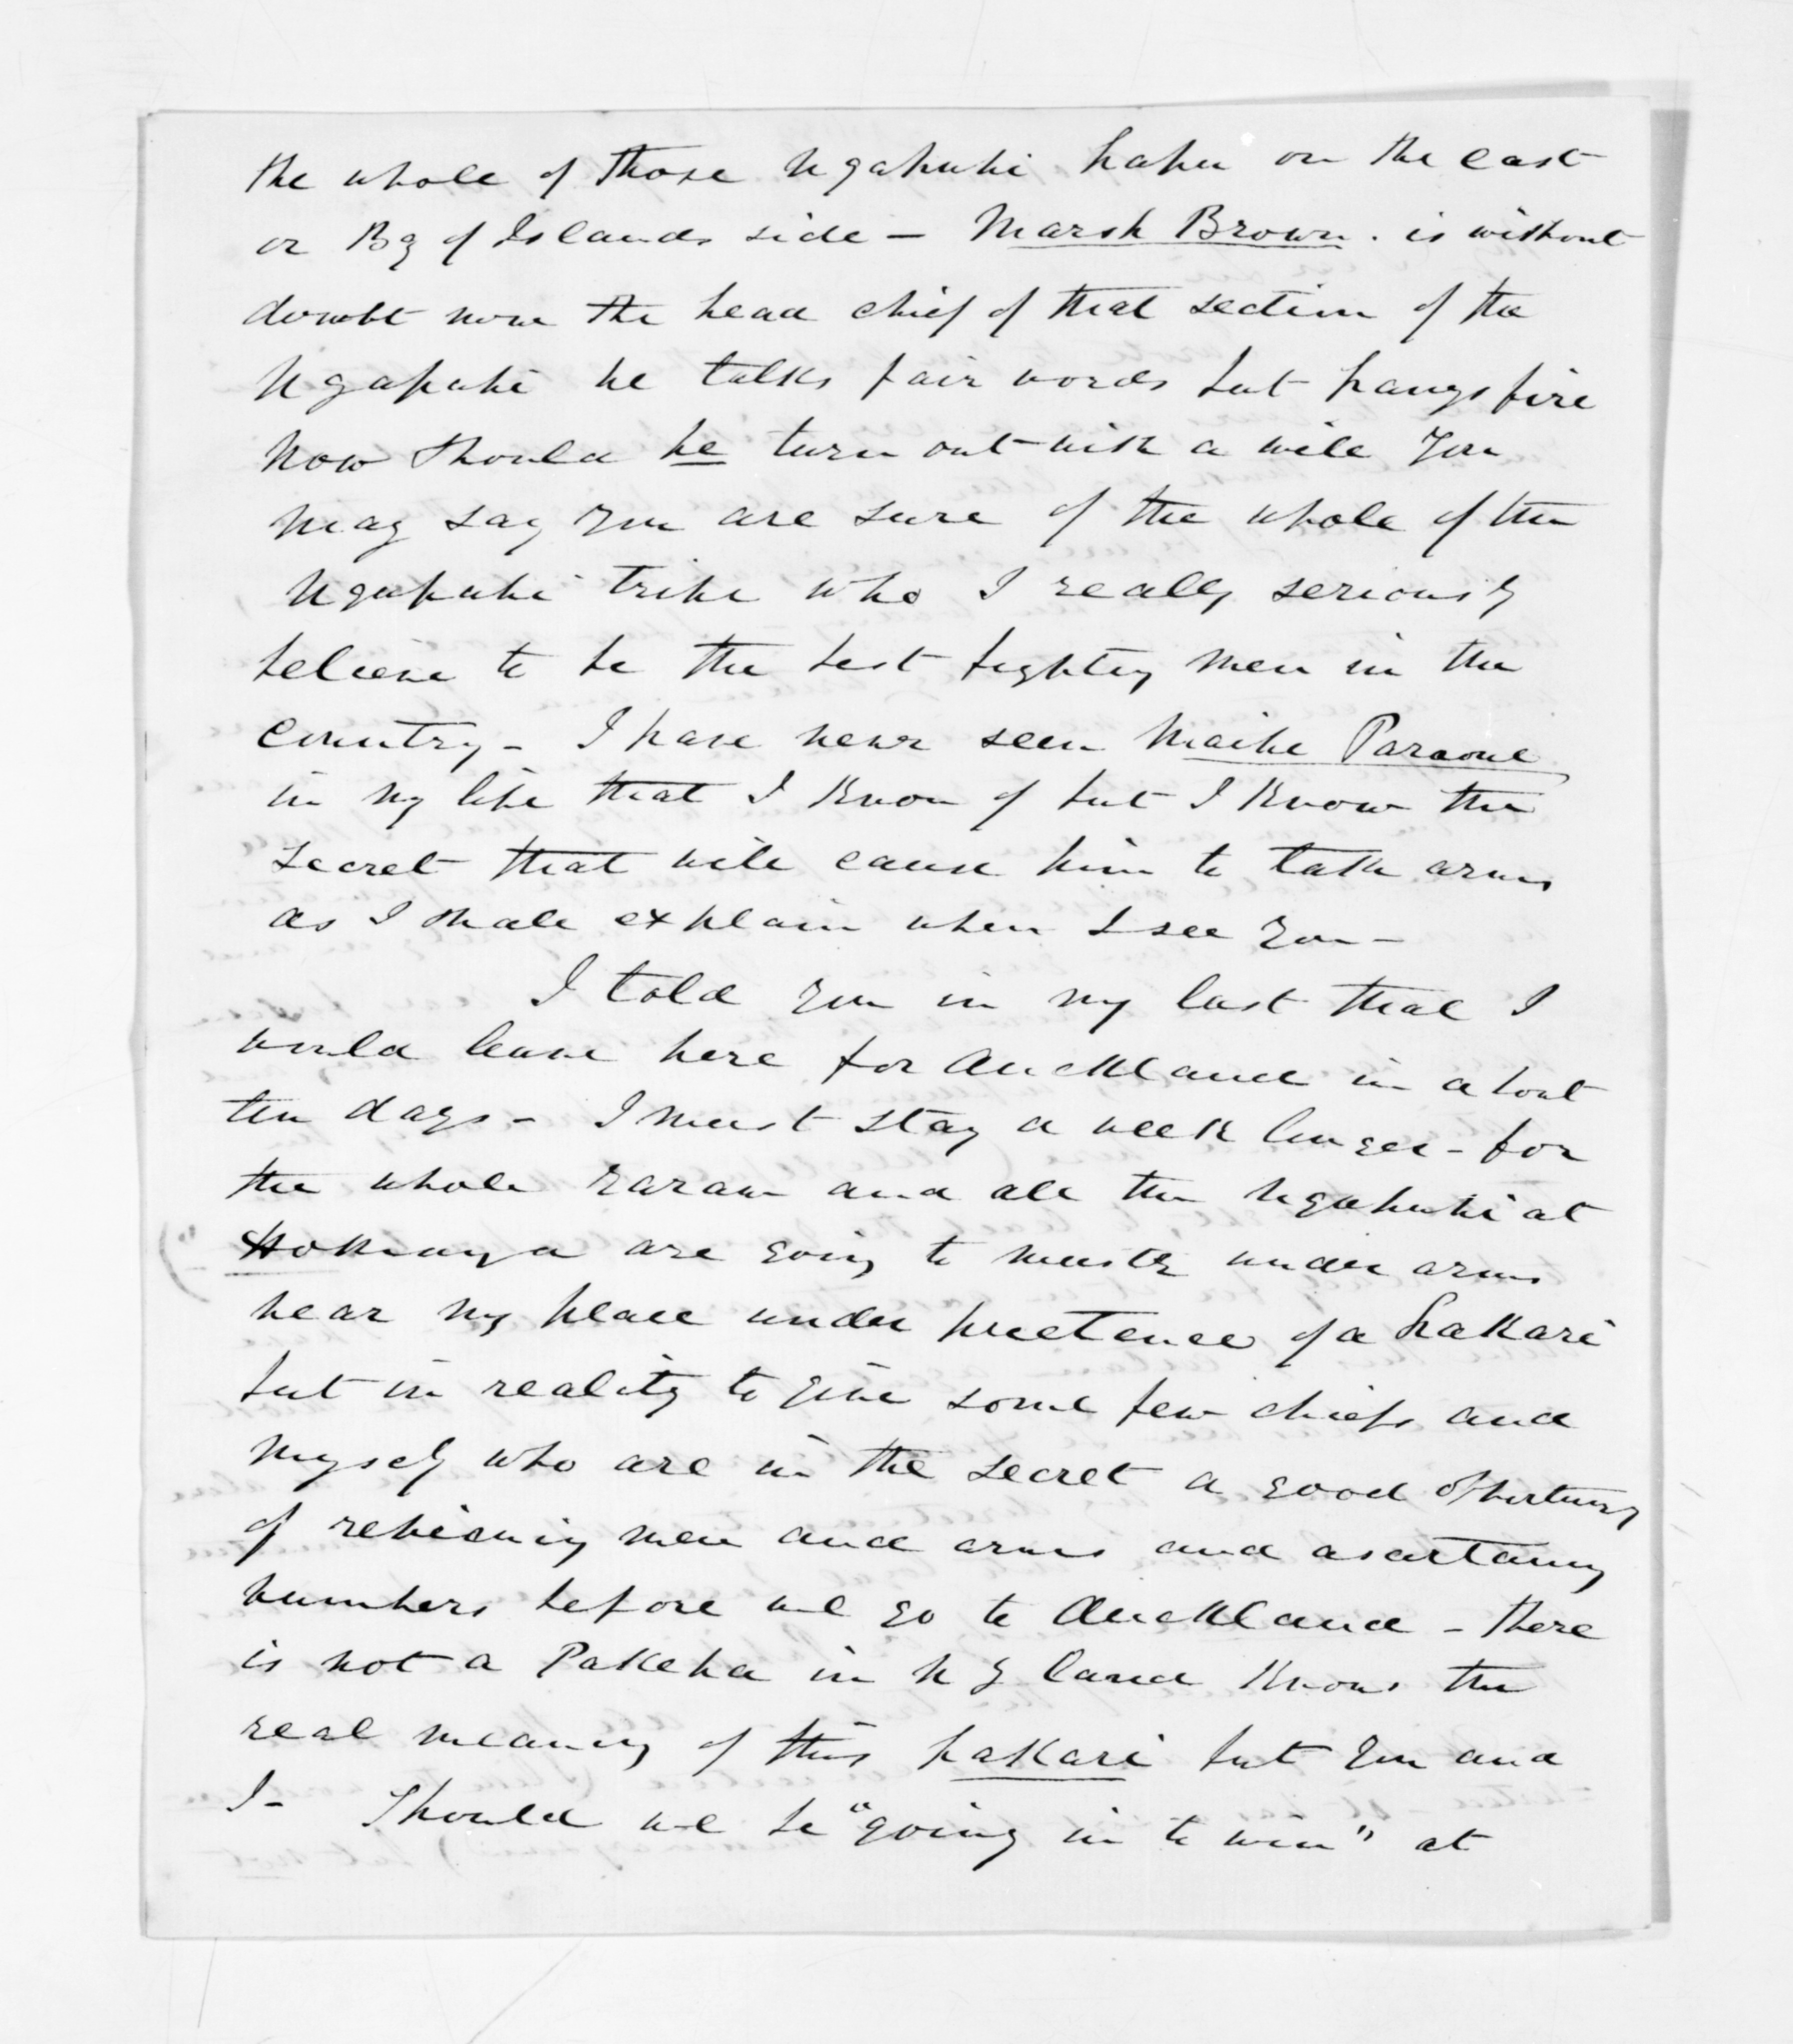 the whole of those Ngapuhi hapu on the east
or Bg of Islands side — Marsh Brown. is without
doubt now the head chief of that section of the
Ngapuhi he talks fair words but hangs fire
Now should he turn out with a will you
may say you are sure of the whole of the
Ngapuhi tribe who I really seriously
believe to be the best fighting men in the
Country - I have never seen Maihe Paraone
in my life that I know of but I know the
secret that will cause him to take arms
as I shall explain when I see you -
I told you in my last that I
would leave here for Auckland in about
ten days - I must stay a week longer - for
the whole Rarawa and all the Ngapuhi at
Hokianga are going to muster under arms
near my place under preetence of a hakari
but in reality to give some few chiefs and
myself who are in the secret a good opportuny
of reviewing men and arms and asertaing
numbers before we go to Auckland - there
is not a Pakeha in N Z land knows the
real meaning of this hakari but you and
I - Should we be "going in to win" at